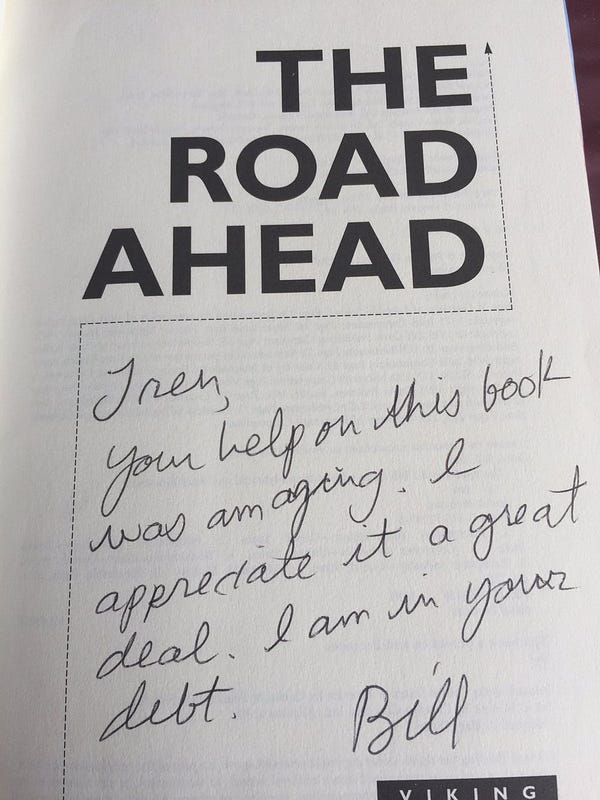 THE
ROAD
AHEAD
Trey,
your help on this book
was amazing. I
appreciate it a great
deal. I am in your
debt.
Bill
VIKING